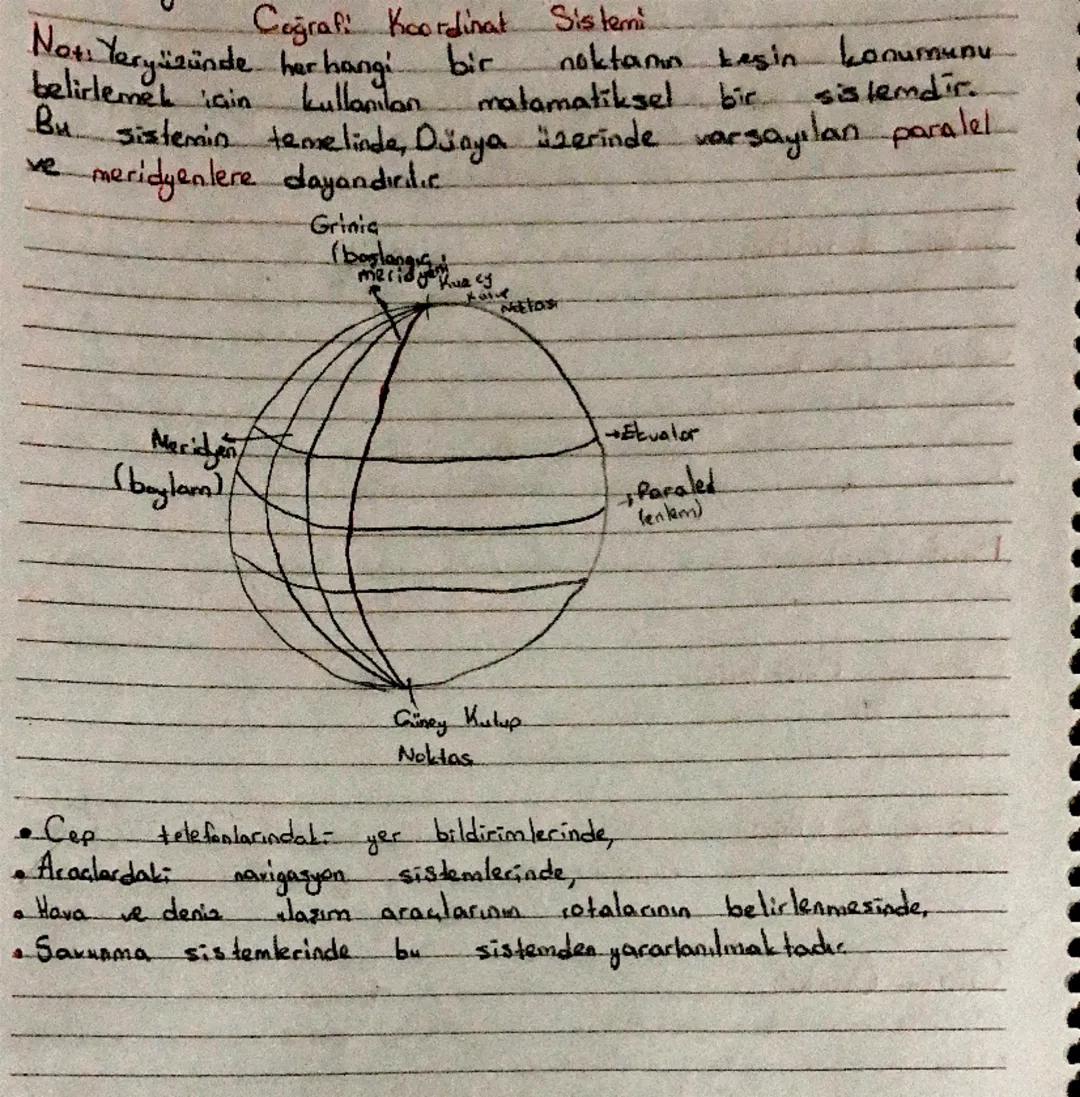 Coğrafi Koordinat Sistemi
Not: Yeryüzünde herhangi bir noktanın kesin konumunu
belirlemek için kullanılan matamatiksel bir sistemdir.
Bu sistemin temelinde, Dünya üzerinde varsayılan paralel
ve meridyenlere dayandırılır
Griniç
(başlangıç
meridyeni
Kuzey
Kutup
Noktası
Meridyen
(boylam)
Ekvator
Paralel
(enlem)
Güney Kutup
Noktas
• Cep telefonlarındaki yer bildirimlerinde,
• Araçlardaki navigasyon sistemlerinde,
• Hava ve deniz ulaşım araçlarının rotalarının belirlenmesinde,
• Savunma sistemlerinde bu sistemden yararlanılmaktadır